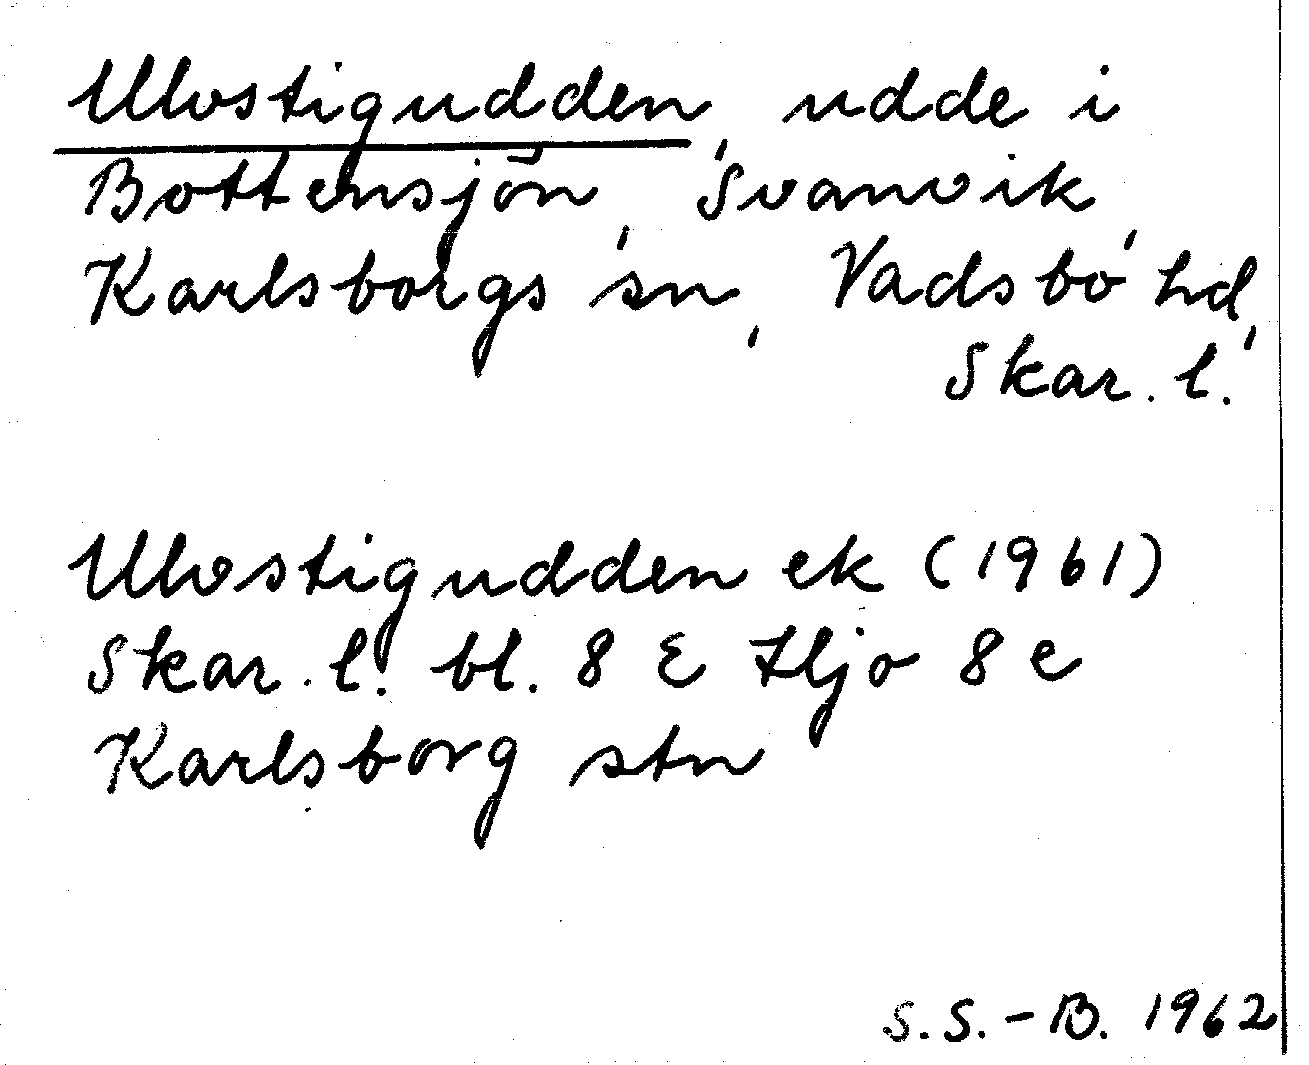 Ulvstigudden, udde i
Bottensjön, Svanvik,
Karlsborgs sn, Vadsbo hd,
Skar. l.
Ulvstigudden ek (1961)
Skar. l. bl. 8 E Hjo 8 e
Karlsborg stn
S. S.-B. 1962